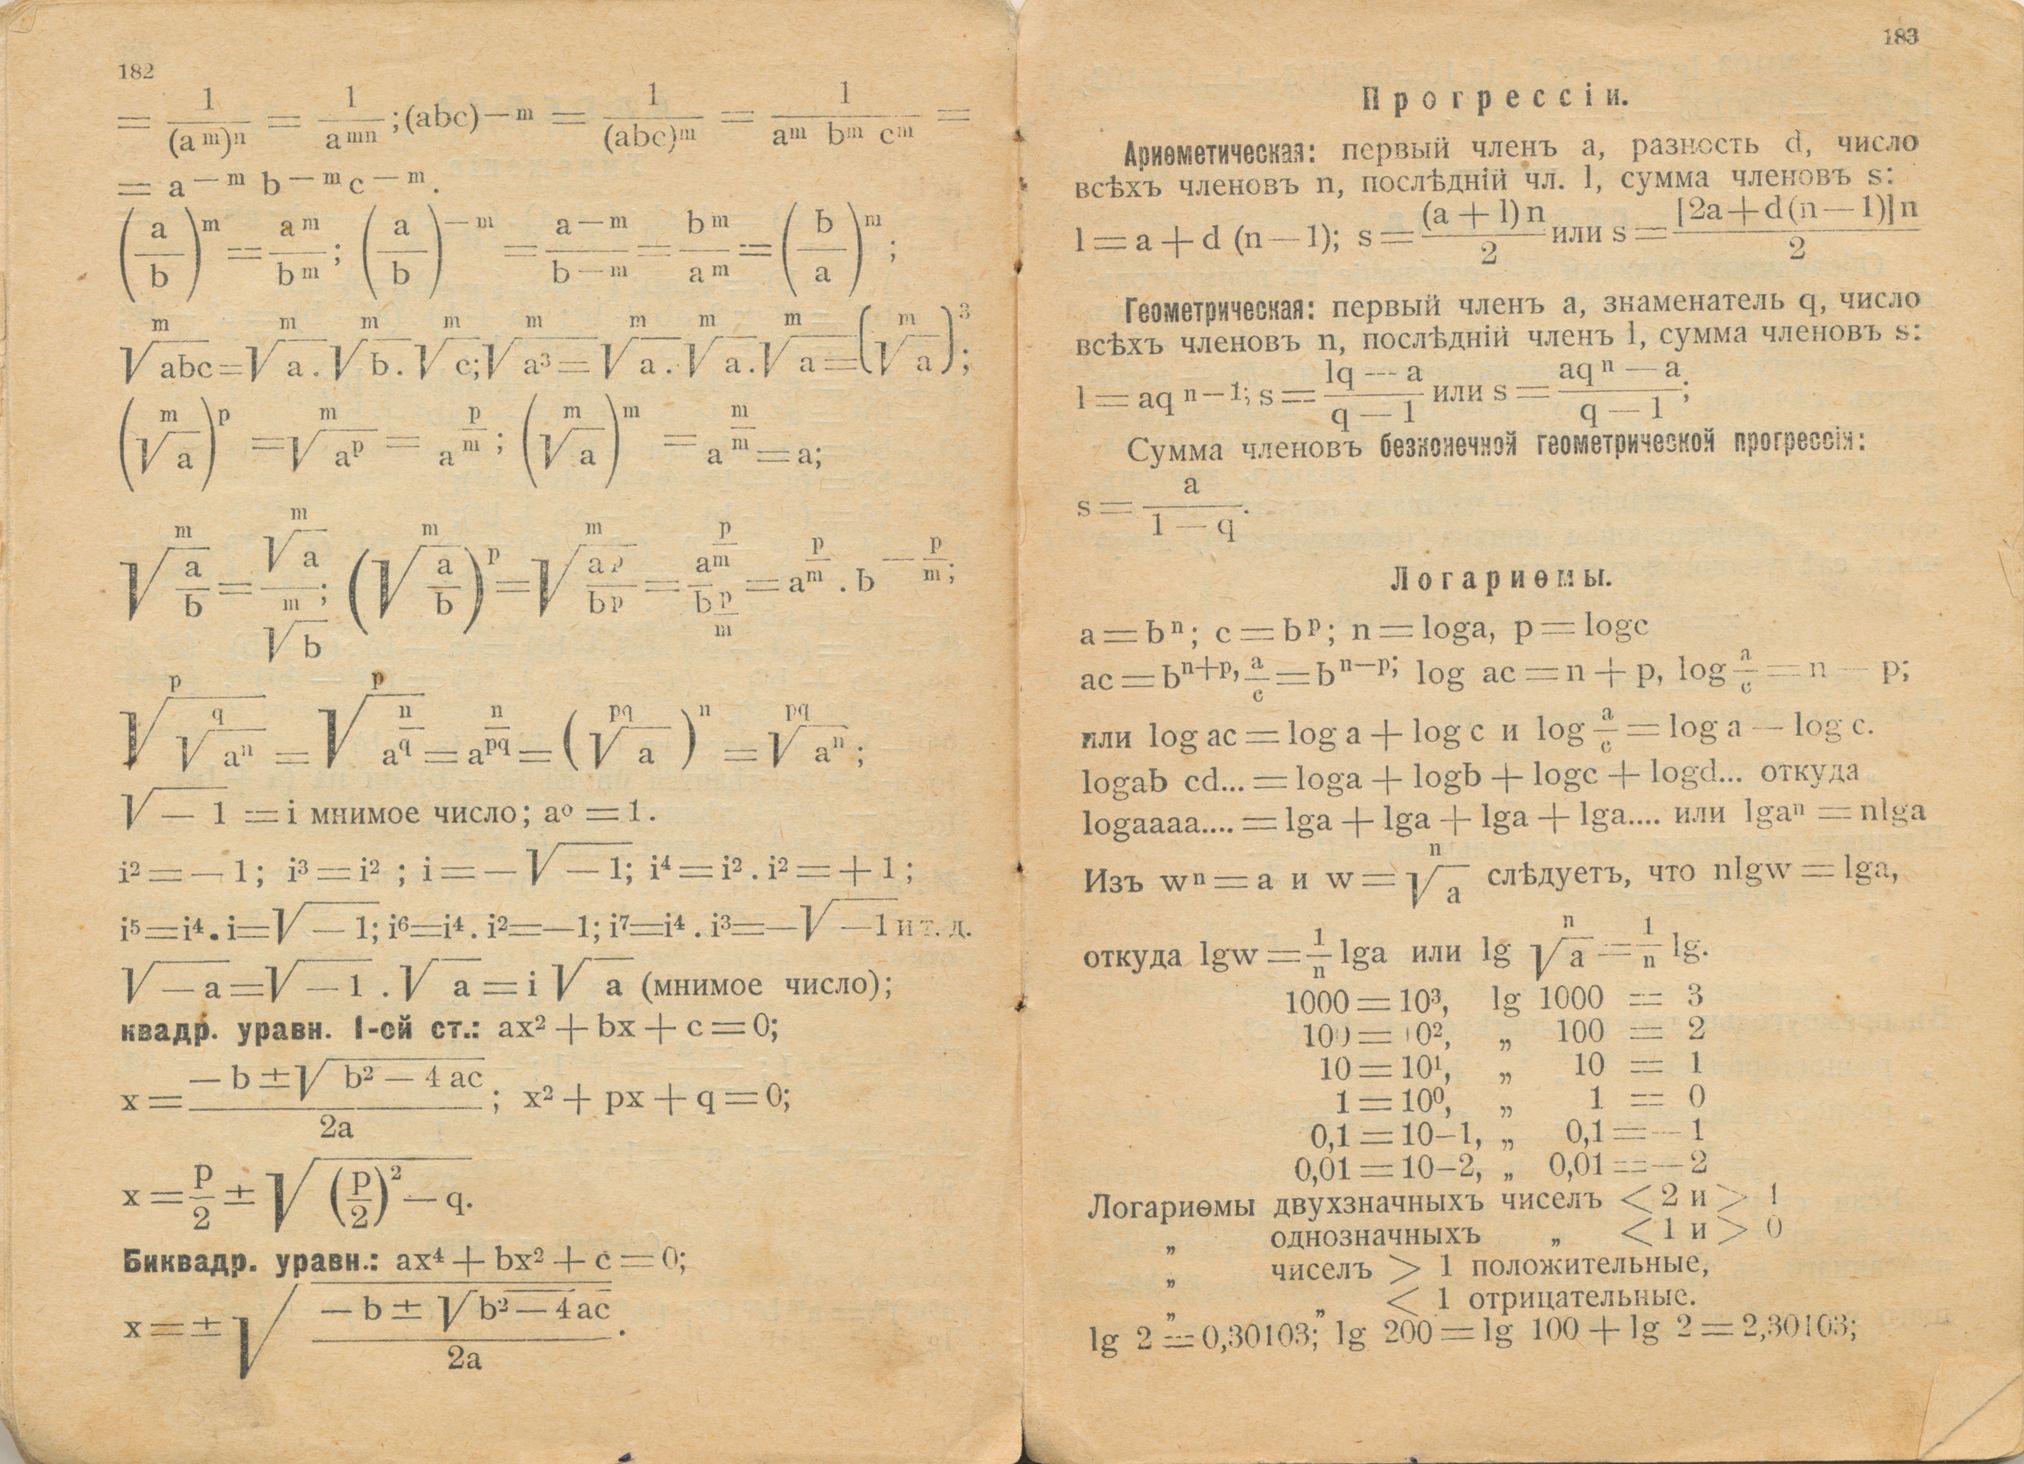 182
= 1/(a^m)^n = 1/a^mn ; (abc)—^m = 1/(abc)^m = 1/a^m b^m c^m =
= a^—m b^—m c^—m.
(a/b)^m = a^m/b^m ; (a/b)^—m = a^—m/b^—m = b^m/a^m = (b/a)^m ;
^m√abc = ^m√a . ^m√b . ^m√c; ^m√a³ = ^m√a . ^m√a . ^m√a = (^m√a)³ ;
(^m√a)^p = ^m√a^p = a^p/m ; (^m√a)^m = a^m/m = a;
^m√(a/b) = ^m√a/^m√b ; (^m√(a/b))^p = ^m√(a^p/b^p) = a^p/m / b^p/m = a^p/m . b^—p/m ;
^p√(^q√a^n) = ^p√(a^n/q) = a^n/pq = (^pq√a)^n = ^pq√a^n ;
√—1 = i мнимое число; a⁰ = 1.
i² = — 1; i³ = i² ; i = — √—1; i⁴ = i² . i² = + 1 ;
i⁵ = i⁴ . i = √—1; i⁶ = i⁴ . i² = —1; i⁷ = i⁴ . i³ = — √—1 и т. д.
√—a = √—1 . √a = i √a (мнимое число);
квадр. уравн. I-ой ст.: ax² + bx + c = 0;
x = (— b ± √b² — 4 ac)/2a ; x² + px + q = 0;
x = p/2 ± √(p/2)² — q.
Биквадр. уравн.: ax⁴ + bx² + c = 0;
x = ± √((— b ± √b² — 4 ac)/2a) .
183
Прогрессіи.
Ариѳметическая: первый членъ a, разность d, число
всѣхъ членовъ n, послѣдній чл. l, сумма членовъ s:
l = a + d (n — 1); s = (a + l) n/2 или s = [2a + d (n — 1)] n/2
Геометрическая: первый членъ a, знаменатель q, число
всѣхъ членовъ n, послѣдній членъ l, сумма членовъ s:
l = aq^n—1; s = (lq — a)/(q — 1) или s = (aq^n — a)/(q — 1) ;
Сумма членовъ безконечной геометрической прогрессіи:
s = a/(1 — q).
Логариѳмы.
a = b^n ; c = b^p ; n = loga, p = logc
ac = b^n+p, a/c = b^n—p; log ac = n + p, log a/c = n — p;
или log ac = log a + log c и log a/c = log a — log c.
logab cd... = loga + logb + logc + logd... откуда
logaaaa.... = lga + lga + lga + lga.... или lga^n = nlga
Изъ w^n = a и w = ^n√a слѣдуетъ, что nlgw = lga,
откуда lgw = 1/n lga или lg ^n√a = 1/n lg.
1000 = 10³, lg 1000 = 3
100 = 10², „ 100 = 2
10 = 10¹, „ 10 = 1
1 = 10⁰, „ 1 = 0
0,1 = 10–1, „ 0,1 = — 1
0,01 = 10–2, „ 0,01 = — 2
Логариѳмы двухзначныхъ чиселъ < 2 и > 1
„ однозначныхъ „ < 1 и > 0
„ чиселъ > 1 положительные,
„ „ < 1 отрицательные.
lg 2 = 0,30103; lg 200 = lg 100 + lg 2 = 2,30103;